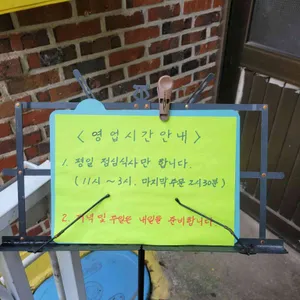 < 영업시간안내 >
1. 평일 점심식사만 합니다.
(11시 ~ 3시. 마지막 주문 2시30분)
2. 저녁 및 주말은 내일을 준비합니다.